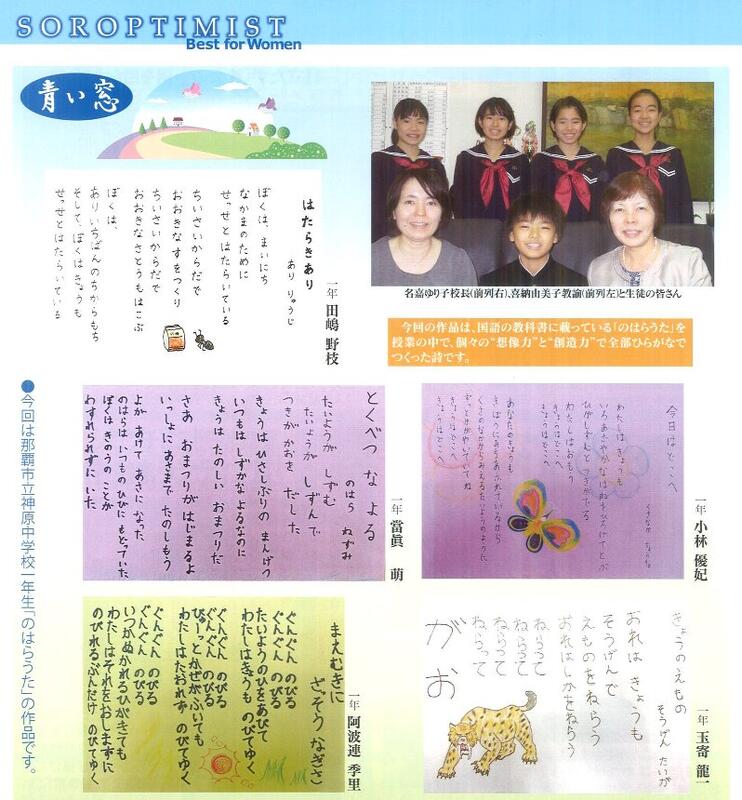 SOROPTIMIST
Best for Women
青い窓
名嘉ゆり子校長(前列右)、喜納由美子教諭(前列左)と生徒の皆さん
今回の作品は、国語の教科書に載っている「のはらうた」を
授業の中で、個々の“想像力”と“創造力”で全部ひらがなで
つくった詩です。
はたらきあり
あり りゅうじ
一年 田嶋 野枝
ぼくは、まいにち
なかまのために
せっせとはたらいている
ちいさいからだで
おおきなすをつくり
ちいさいからだで
おおきなさとうもはこぶ
ぼくは、
ありいちばんのちからもち
そして、ぼくはきょうも
せっせとはたらいている
●今回は那覇市立神原中学校一年生「のはらうた」の作品です。
今日はどこへ
一年 小林 優妃
わたしはきょうも
いろあざやかなはねをひろげてとぶ
ひがしずむとつきがでる
わたしはおもう
きょうはどこへ
きょうはどこへ
とくべつ な よる
のはら ねずみ
一年 當眞 萌
たいようが しずむ
たいようが しずんで
つきが かおを だした
きょうは ひさしぶりの まんげつ
いつもは しずかな よるなのに
きょうは たのしい おまつりだ
さあ おまつりが はじまるよ
いっしょに あさまで たのしもう
よが あけて あさに なった
のはらは いつもの ひびに もどっていた
ぼくは きのうの ことが
わすれられずに いた
きょうのえもの
そうげん たいが
一年 玉寄 龍一
おれは きょうも
そうげんで
えものをねらう
おれはしかをねらう
ねらって
ねらって
ねらって
ねらって
がお
まえむきに
ざっそう なぎさ
一年 阿波連 季里
ぐんぐん のびる
ぐんぐん のびる
たいようのひをあびて
わたしはきょうも のびてゆく
ぐんぐん のびる
ぐんぐん のびる
びゅーっとかぜがふいても
わたしはたおれず のびてゆく
ぐんぐん のびる
ぐんぐん のびる
いつかぬかれるひがきても
わたしはそれをおしまずに
のびれるぶんだけ のびてゆく